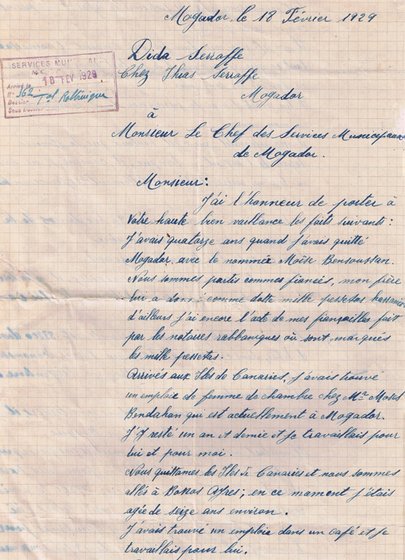 Mogador, le 18 Février 1929
SERVICES MUN
18 FEV 1929
Dida Serraffe
Chez Ihias Serraffe
Mogador
à
Monsieur Le Chef des Services Municipaux
de Mogador.
Monsieur:
J'ai l'honneur de porter à
Votre haute bien vaillance les faits suivants:
J'avais quatorze ans quand j'avais quitté
Mogador avec le nommée Moïse Bensoussan.
Nous sommes partis comme fiancés, mon père
lui a donné comme dotte mille pessetas hassani
d'ailleurs j'ai encore l'acte de mes fiançailles fait
par les notaires rabbaniques où sont marqués
les mille pessetas.
Arrivés aux Iles de Canaries, j'avais trouvé
un emploie de femme de chambre chez Mr Moses
Bendahan qui est actuellement à Mogador.
J'y resté un an et demie et je travaillais pour
lui et pour moi.
Nous quittames les Iles de Canaries et nous sommes
allés à Bonos Ayres; en ce moment j'étais
agée de seize ans environ.
J'avais trouvé un emploie dans un café et je
travaillais pour lui.